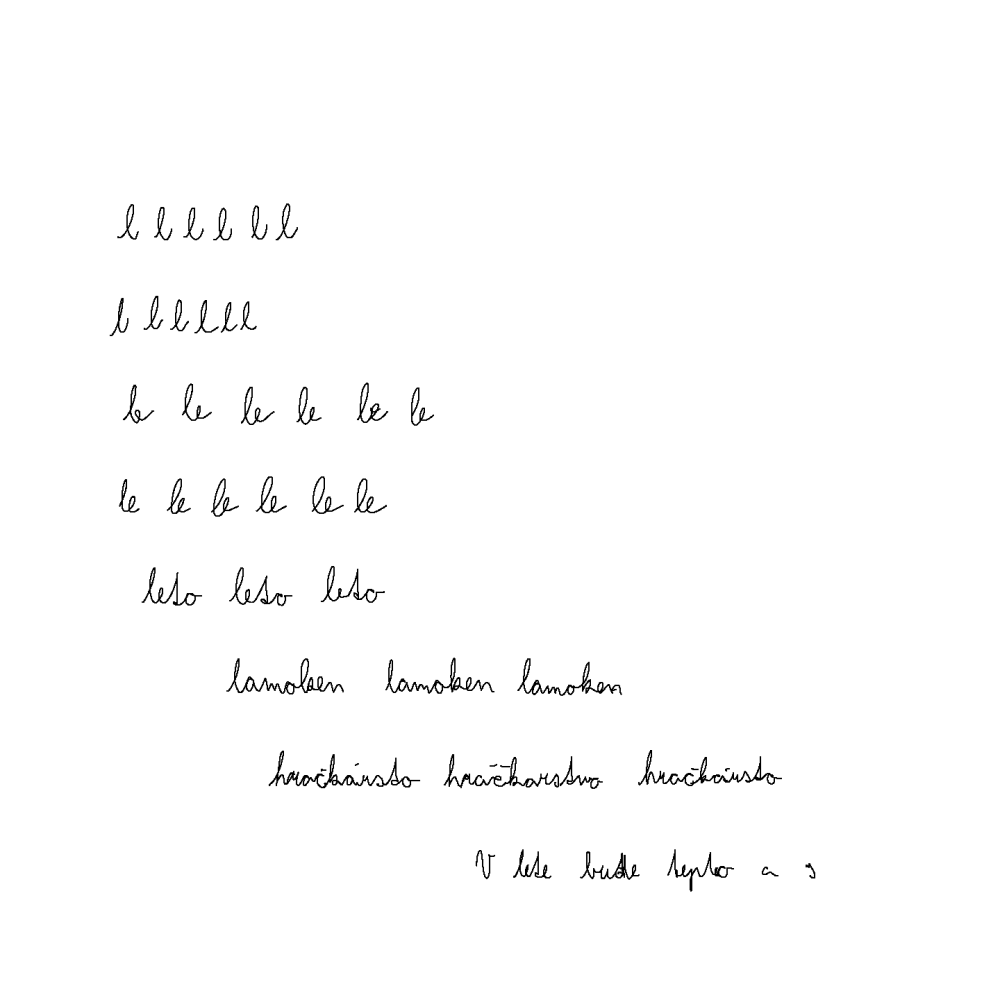 l l l l l l
l l l l l l
le le le le le le
le le le le le le
leto leto leto
lamoken lamoken lamoken
hračkársto hračkarstvo hračkársto
V lete bude teplo a